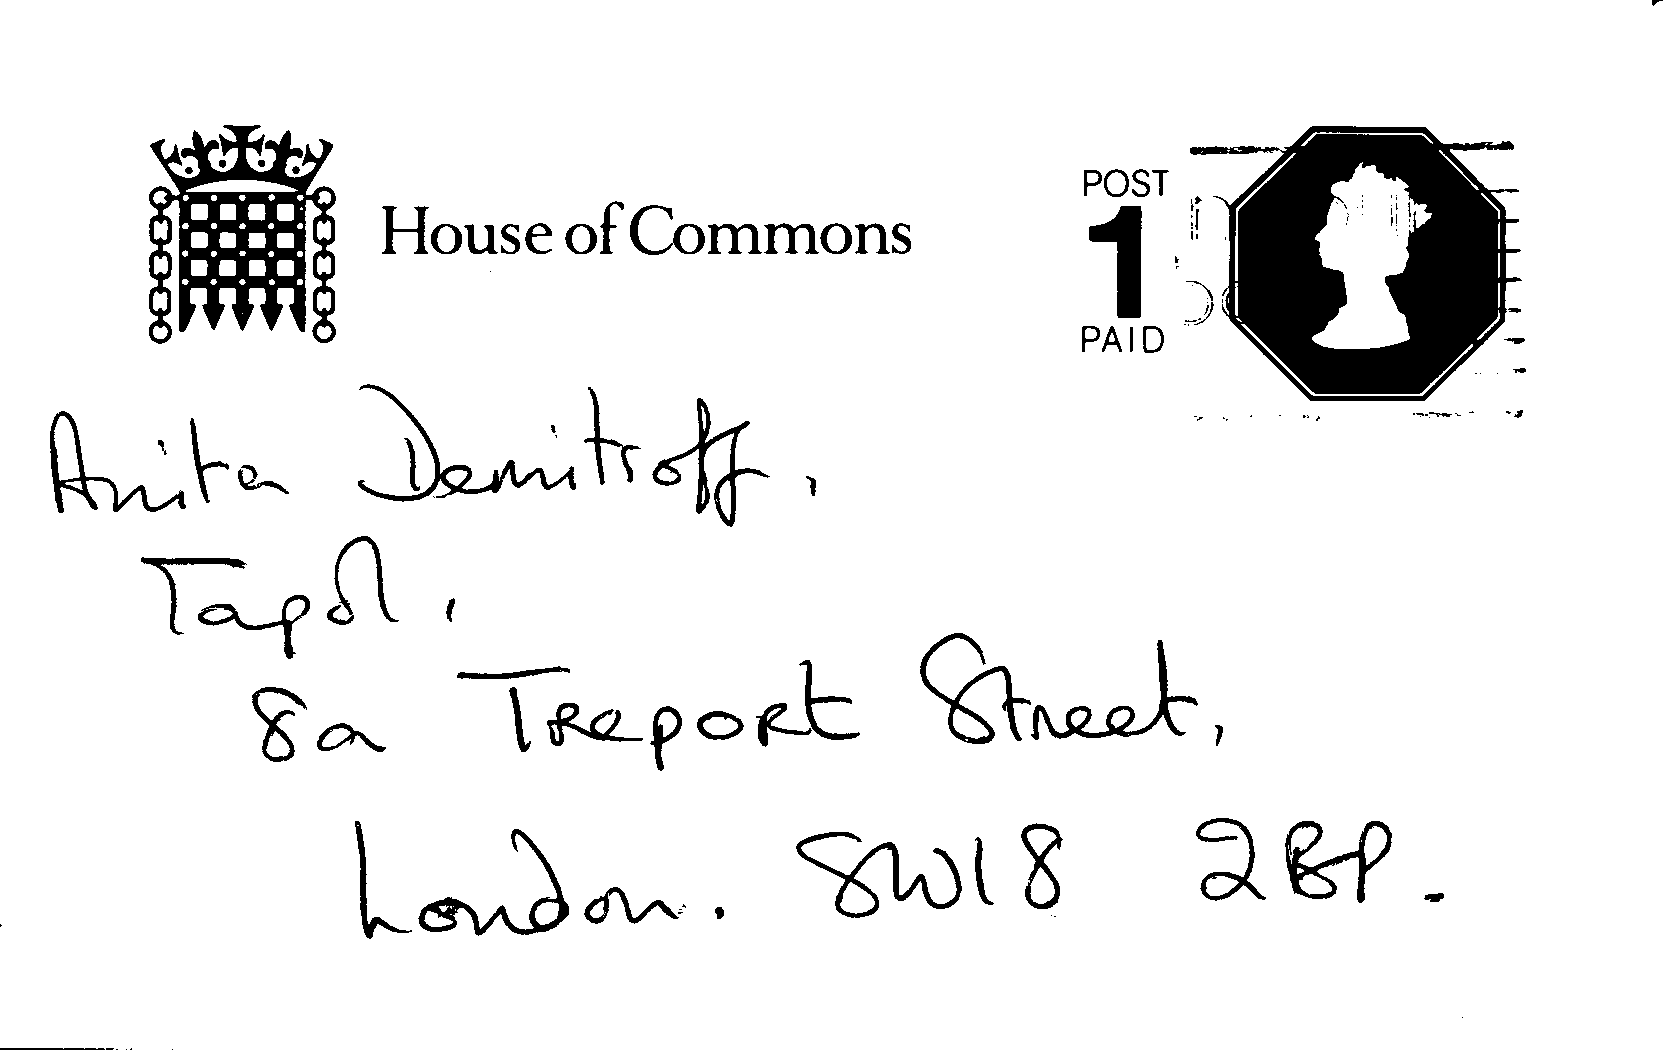 House of Commons
POST
1
PAID
Anita Demitroff,
Tapol,
8a Treport Street,
London. SW18 2BP.